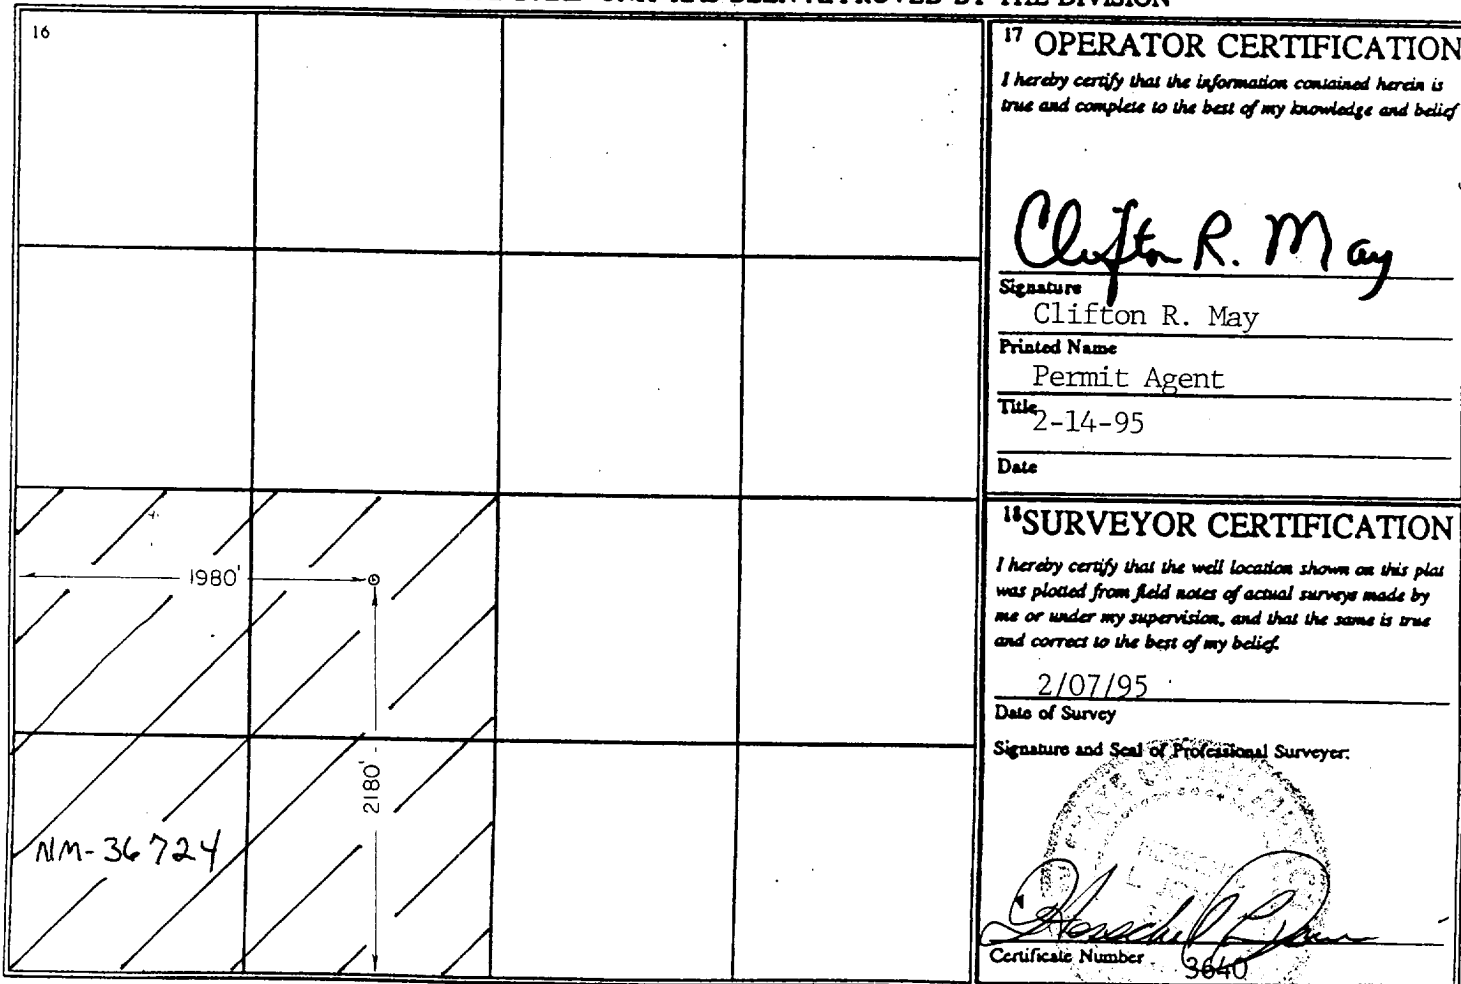 UNIT HAS BEEN APPROVED BY THE DIVISION
16
17 OPERATOR CERTIFICATION
I hereby certify that the information contained herein is
true and complete to the best of my knowledge and belief
Clifton R. May
Signature
Clifton R. May
Printed Name
Permit Agent
Title
2-14-95
Date
18 SURVEYOR CERTIFICATION
I hereby certify that the well location shown on this plat
was plotted from field notes of actual surveys made by
me or under my supervision, and that the same is true
and correct to the best of my belief.
2/07/95
Date of Survey
Signature and Seal of Professional Surveyer:
Certificate Number
3640
1980'
2180'
NM-36724